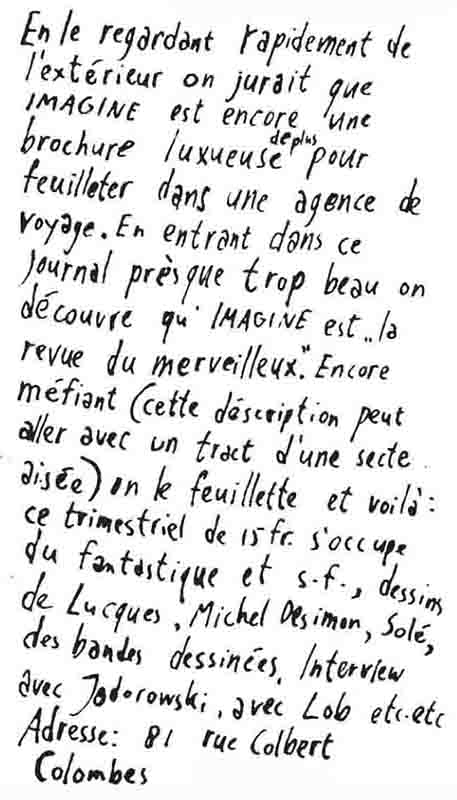 En le regardant rapidement de
l'extérieur on jurait que
IMAGINE est encore une
brochure luxueuse de plus pour
feuilleter dans une agence de
voyage. En entrant dans ce
journal prèsque trop beau on
découvre qu'IMAGINE est „la
revue du merveilleux". Encore
méfiant (cette déscription peut
aller avec un tract d'une secte
aisée) on le feuillette et voilà:
ce trimestriel de 15 fr. s'occupe
du fantastique et s.-f., dessins
de Lucques, Michel Désimon, Solé,
des bandes dessinées, Interview
avec Jodorowski, avec Lob etc-etc
Adresse: 81 rue Colbert
Colombes